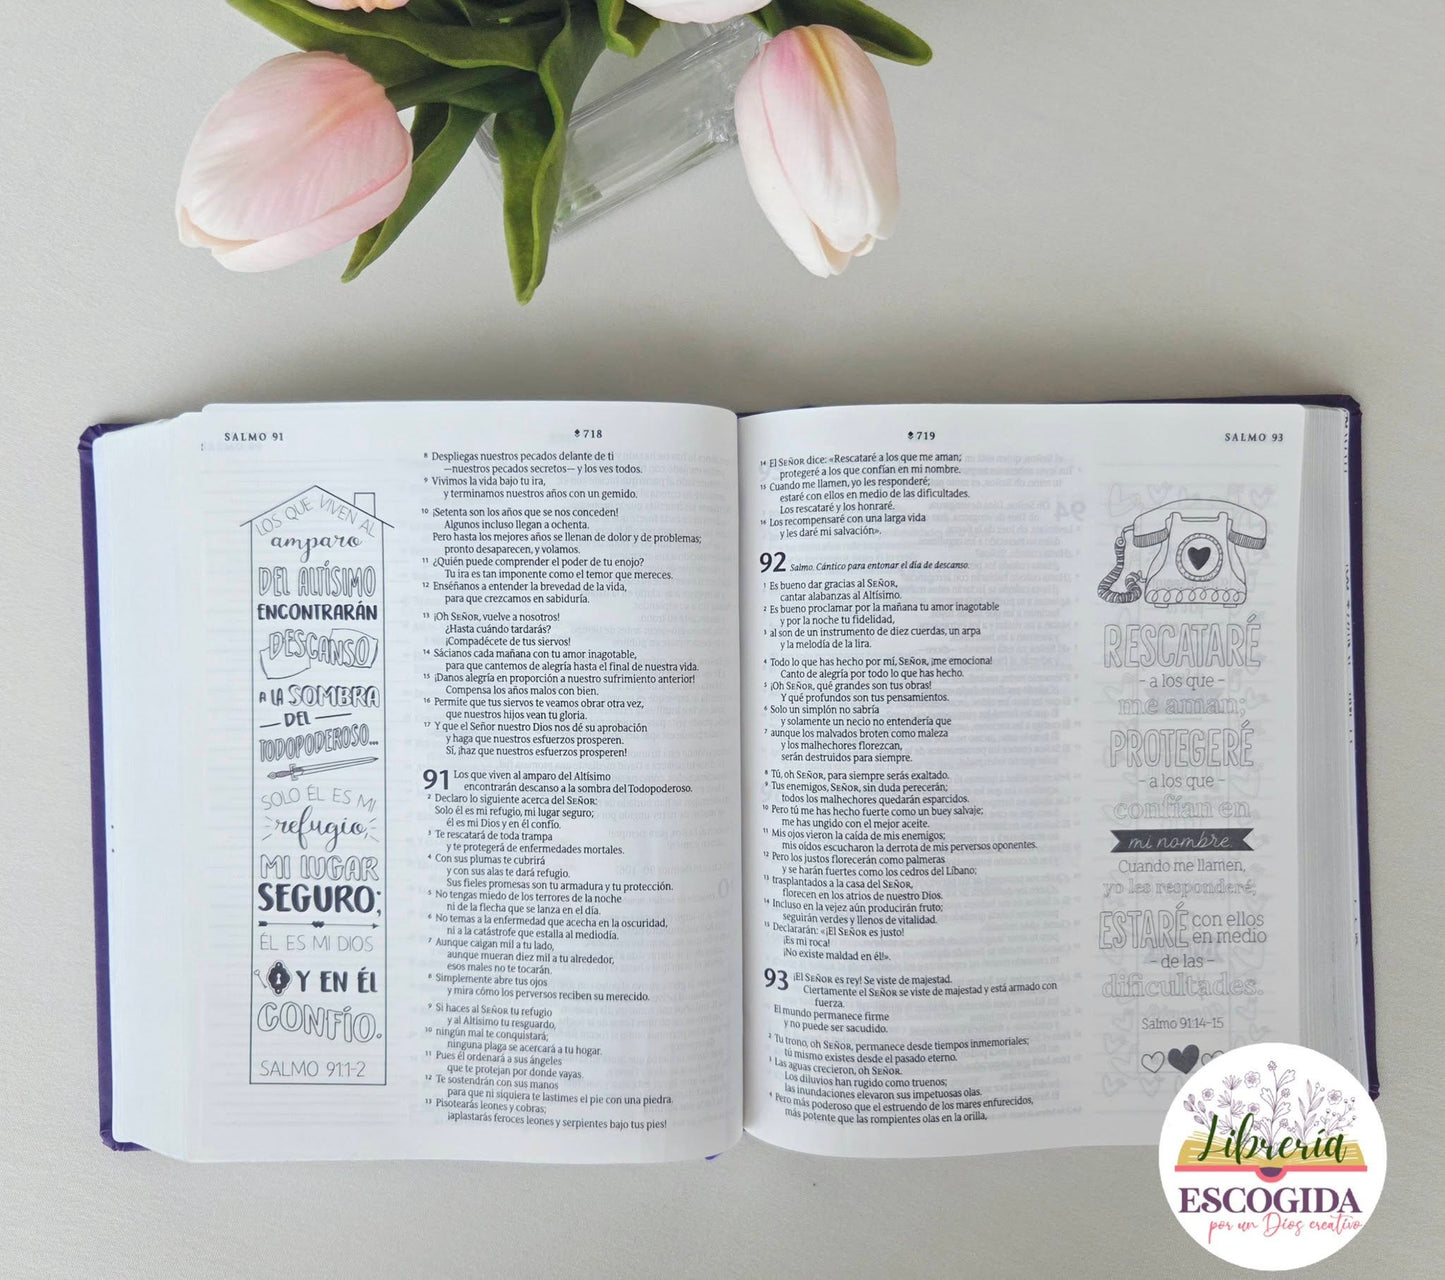 SALMO 91
718
LOS QUE VIVEN AL
amparo
DEL ALTÍSIMO
ENCONTRARÁN
DESCANSO
A LA SOMBRA
DEL
TODOPODEROSO...
SOLO ÉL ES MI
refugio,
MI LUGAR
SEGURO;
ÉL ES MI DIOS
Y EN ÉL
CONFÍO.
SALMO 91:1-2
8 Despliegas nuestros pecados delante de ti
—nuestros pecados secretos— y los ves todos.
9 Vivimos la vida bajo tu ira,
y terminamos nuestros años con un gemido.
10 ¡Setenta son los años que se nos conceden!
Algunos incluso llegan a ochenta.
Pero hasta los mejores años se llenan de dolor y de problemas;
pronto desaparecen, y volamos.
11 ¿Quién puede comprender el poder de tu enojo?
Tu ira es tan imponente como el temor que mereces.
12 Enséñanos a entender la brevedad de la vida,
para que crezcamos en sabiduría.
13 ¡Oh SEÑOR, vuelve a nosotros!
¿Hasta cuándo tardarás?
¡Compadécete de tus siervos!
14 Sácianos cada mañana con tu amor inagotable,
para que cantemos de alegría hasta el final de nuestra vida.
15 ¡Danos alegría en proporción a nuestro sufrimiento anterior!
Compensa los años malos con bien.
16 Permite que tus siervos te veamos obrar otra vez,
que nuestros hijos vean tu gloria.
17 Y que el Señor nuestro Dios nos dé su aprobación
y haga que nuestros esfuerzos prosperen.
Sí, ¡haz que nuestros esfuerzos prosperen!
91 Los que viven al amparo del Altísimo
encontrarán descanso a la sombra del Todopoderoso.
2 Declaro lo siguiente acerca del SEÑOR:
Solo él es mi refugio, mi lugar seguro;
él es mi Dios y en él confío.
3 Te rescatará de toda trampa
y te protegerá de enfermedades mortales.
4 Con sus plumas te cubrirá
y con sus alas te dará refugio.
Sus fieles promesas son tu armadura y tu protección.
5 No tengas miedo de los terrores de la noche
ni de la flecha que se lanza en el día.
6 No temas a la enfermedad que acecha en la oscuridad,
ni a la catástrofe que estalla al mediodía.
7 Aunque caigan mil a tu lado,
aunque mueran diez mil a tu alrededor,
esos males no te tocarán.
8 Simplemente abre tus ojos
y mira cómo los perversos reciben su merecido.
9 Si haces al SEÑOR tu refugio
y al Altísimo tu resguardo,
10 ningún mal te conquistará;
ninguna plaga se acercará a tu hogar.
11 Pues él ordenará a sus ángeles
que te protejan por donde vayas.
12 Te sostendrán con sus manos
para que ni siquiera te lastimes el pie con una piedra.
13 Pisotearás leones y cobras;
¡aplastarás feroces leones y serpientes bajo tus pies!
719
SALMO 93
14 El SEÑOR dice: «Rescataré a los que me aman;
protegeré a los que confían en mi nombre.
15 Cuando me llamen, yo les responderé;
estaré con ellos en medio de las dificultades.
Los rescataré y los honraré.
16 Los recompensaré con una larga vida
y les daré mi salvación».
92 Salmo. Cántico para entonar el día de descanso.
1 Es bueno dar gracias al SEÑOR,
cantar alabanzas al Altísimo.
2 Es bueno proclamar por la mañana tu amor inagotable
y por la noche tu fidelidad,
3 al son de un instrumento de diez cuerdas, un arpa
y la melodía de la lira.
4 Todo lo que has hecho por mí, SEÑOR, ¡me emociona!
Canto de alegría por todo lo que has hecho.
5 ¡Oh SEÑOR, qué grandes son tus obras!
Y qué profundos son tus pensamientos.
6 Solo un simplón no sabría
y solamente un necio no entendería que
7 aunque los malvados broten como maleza
y los malhechores florezcan,
serán destruidos para siempre.
8 Tú, oh SEÑOR, para siempre serás exaltado.
9 Tus enemigos, SEÑOR, sin duda perecerán;
todos los malhechores quedarán esparcidos.
10 Pero tú me has hecho fuerte como un buey salvaje;
me has ungido con el mejor aceite.
11 Mis ojos vieron la caída de mis enemigos;
mis oídos escucharon la derrota de mis perversos oponentes.
12 Pero los justos florecerán como palmeras
y se harán fuertes como los cedros del Líbano;
13 trasplantados a la casa del SEÑOR,
florecen en los atrios de nuestro Dios.
14 Incluso en la vejez aún producirán fruto;
seguirán verdes y llenos de vitalidad.
15 Declararán: «¡El SEÑOR es justo!
¡Es mi roca!
¡No existe maldad en él!».
93 ¡El SEÑOR es rey! Se viste de majestad.
Ciertamente el SEÑOR se viste de majestad y está armado con
fuerza.
El mundo permanece firme
y no puede ser sacudido.
2 Tu trono, oh SEÑOR, permanece desde tiempos inmemoriales;
tú mismo existes desde el pasado eterno.
3 Las aguas crecieron, oh SEÑOR.
Los diluvios han rugido como truenos;
las inundaciones elevaron sus impetuosas olas.
4 Pero más poderoso que el estruendo de los mares enfurecidos,
más potente que las rompientes olas en la orilla,
RESCATARÉ
- a los que -
me aman;
PROTEGERÉ
- a los que -
confían en
mi nombre
Cuando me llamen,
yo les responderé;
ESTARÉ con ellos
en medio
- de las -
dificultades.
Salmo 91:14-15
Librería
ESCOGIDA
por un Dios creativo